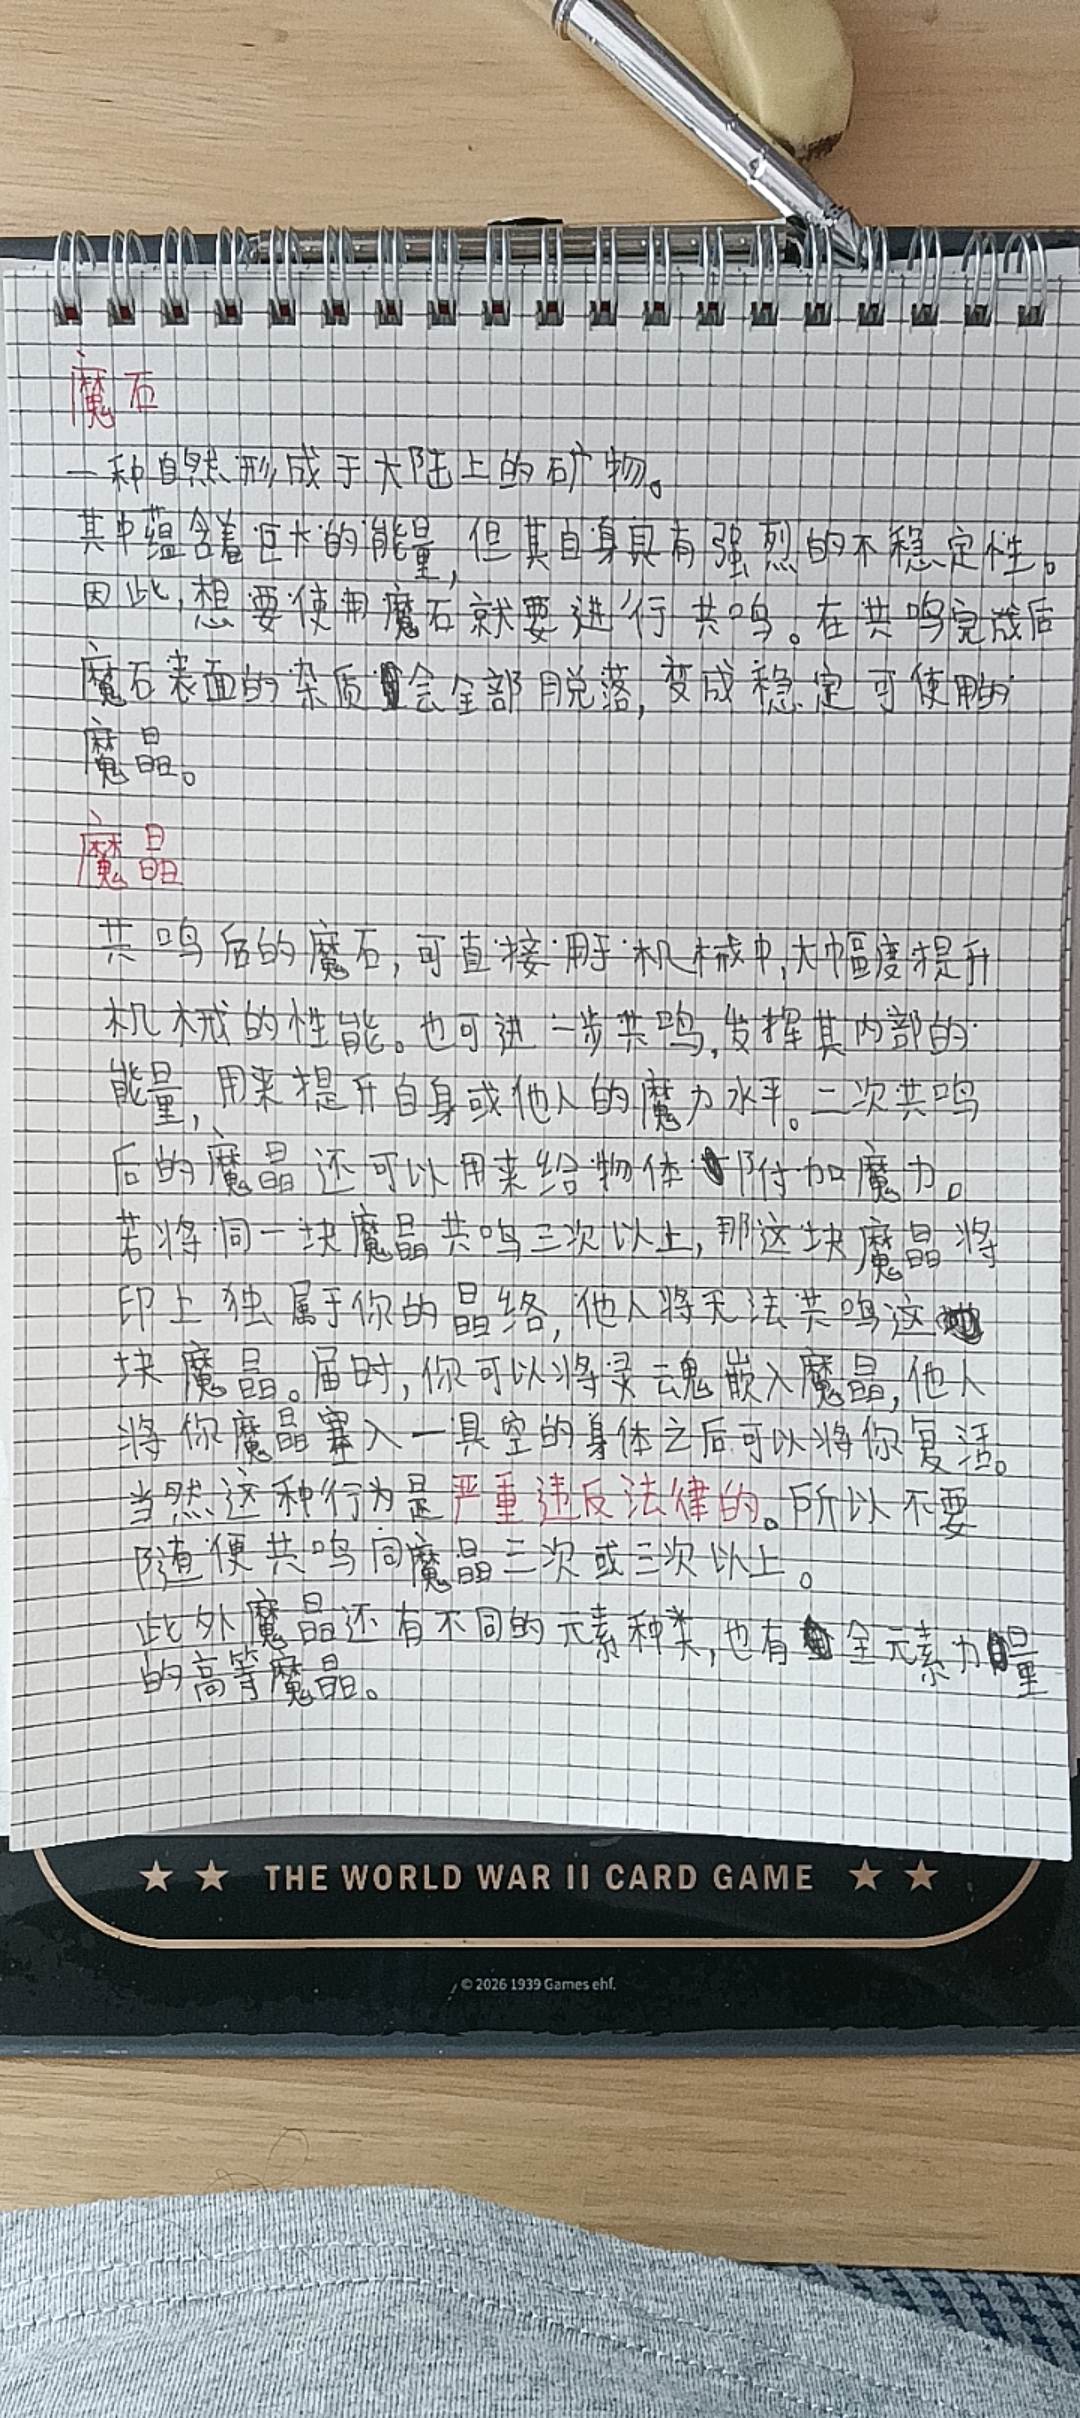 魔石
一种自然形成于大陆上的矿物。
其中蕴含着巨大的能量,但其自身具有强烈的不稳定性。
因此,想要使用魔石就要进行共鸣。在共鸣完成后
魔石表面的杂质会全部脱落,变成稳定可使用的
魔晶。
魔晶
共鸣后的魔石,可直接用于机械中,大幅度提升
机械的性能。也可进一步共鸣,发挥其内部的
能量,用来提升自身或他人的魔力水平。二次共鸣
后的魔晶还可以用来给物体附加魔力。
若将同一块魔晶共鸣三次以上,那这块魔晶将
印上独属于你的晶络,他人将无法共鸣这
块魔晶。届时,你可以将灵魂嵌入魔晶,他人
将你魔晶塞入一具空的身体之后可以将你复活。
当然这种行为是严重违反法律的。所以不要
随便共鸣同魔晶三次或三次以上。
此外魔晶还有不同的元素种类,也有全元素力量
的高等魔晶。
★ ★ THE WORLD WAR II CARD GAME ★ ★
© 2026 1939 Games ehf.